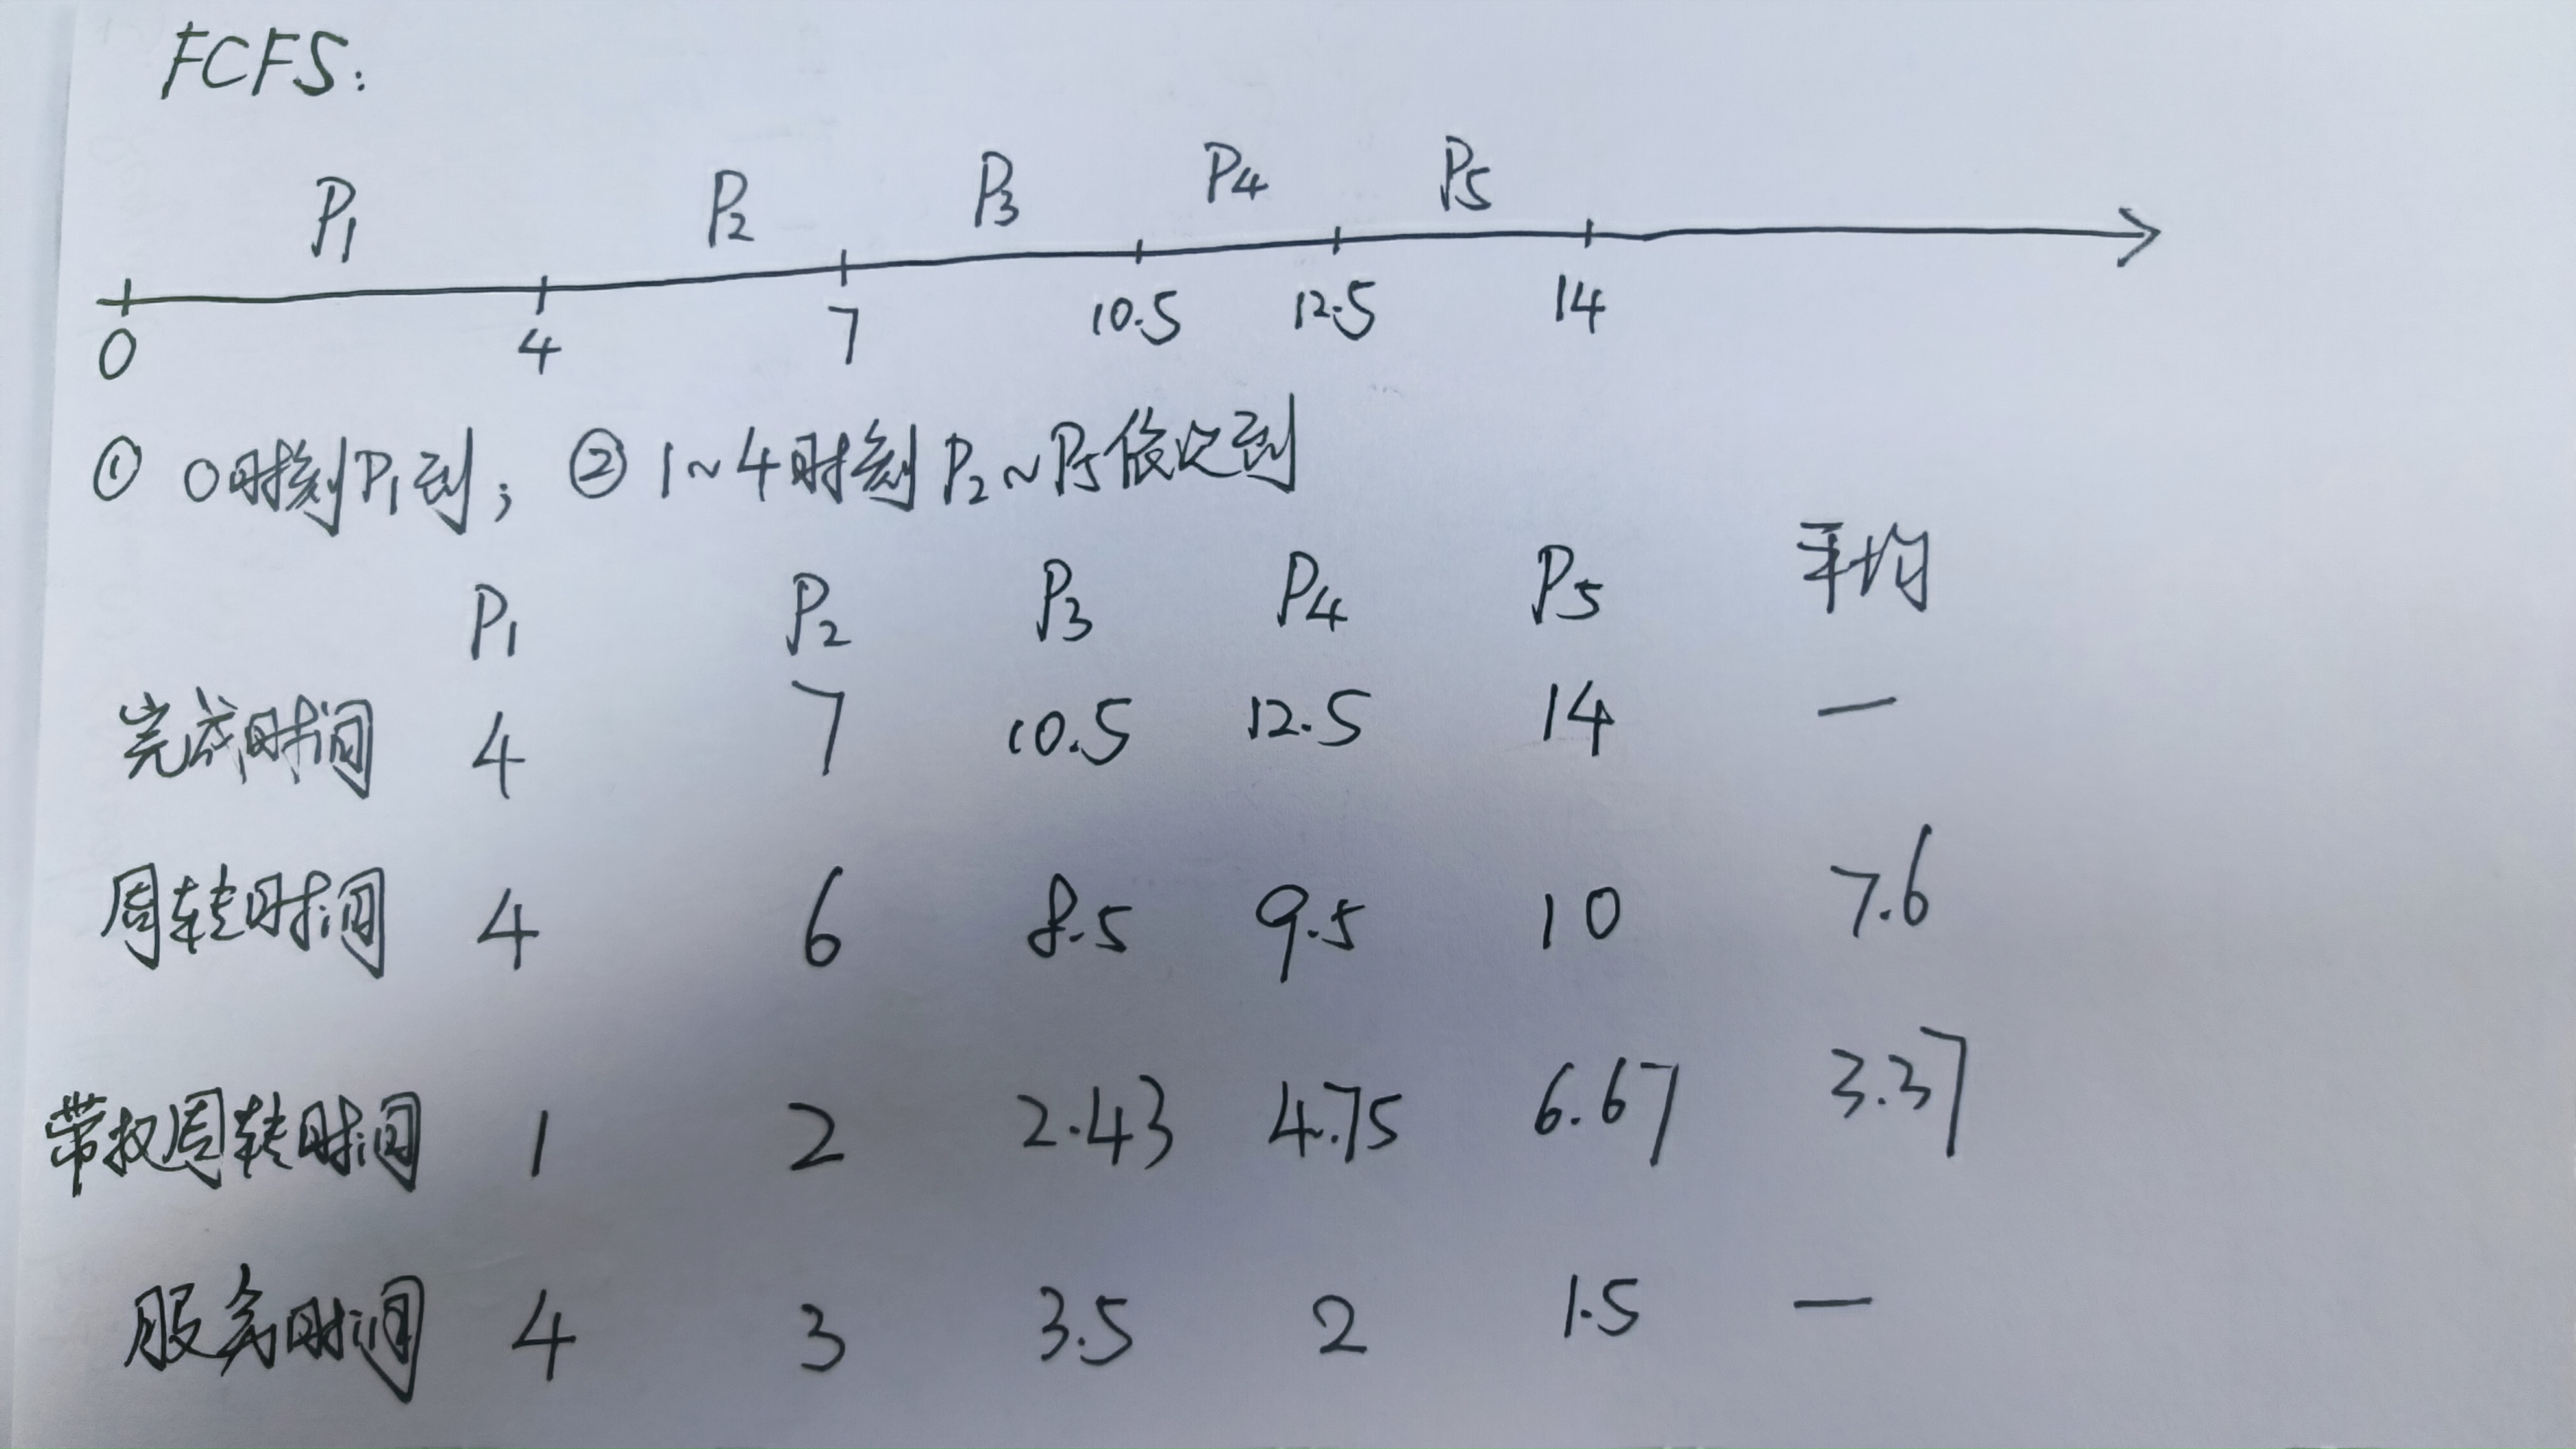 FCFS:
P1 P2 P3 P4 P5
0 4 7 10.5 12.5 14
① 0时刻P1到; ② 1~4时刻P2~P5依次到
P1 P2 P3 P4 P5 平均
完成时间 4 7 10.5 12.5 14 —
周转时间 4 6 8.5 9.5 10 7.6
带权周转时间 1 2 2.43 4.75 6.67 3.37
服务时间 4 3 3.5 2 1.5 —